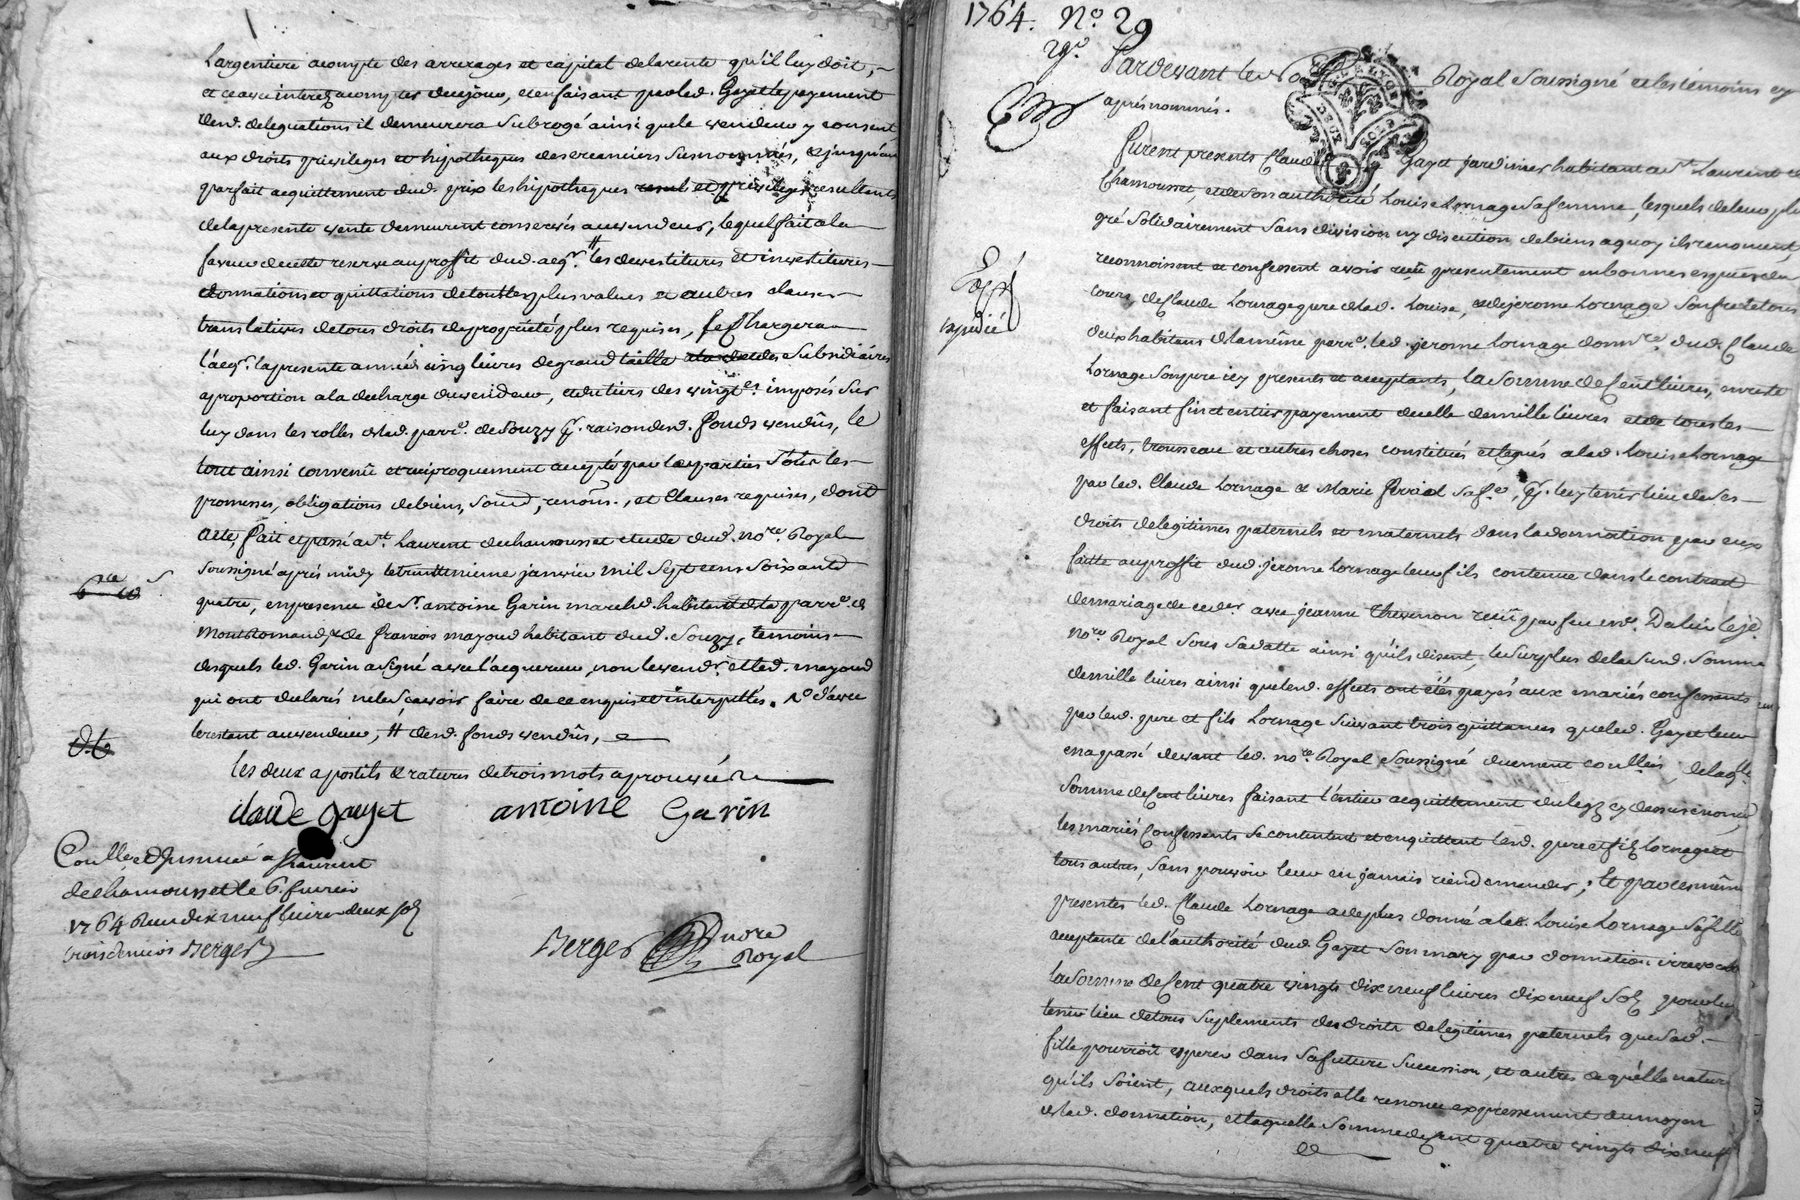 Largentiere acompte des arrerages et capital delarente qu'il luy doit,
et ce avec interez acompter decejour, et enfaisant par led. Gayet le payement
desd. delegations il demeurera subrogé ainsi que le vendeur y consent
aux droits privileges et hypotheques des creanciers susnommés, et jusqu'au
parfait acquittement dud. prix les hypotheques et privileges resultants
delapresente vente demeurent conservés auvendeur, lequel fait ala
faveur decette reserve auproffit dud. aeqr. # les devestitures et investitures
donnations et quittations detoutes plus values et autres clauses
translatives detous droits deproprieté plus requises, se Chargera
l'aeqr. lapresente année cinq livres degrand taille subsidiaires
aproportion ala decharge duvendeur, et du tiers des vingtes. imposés sur
luy dans les rolles delad. parre. de Souzy pr. raison desd. fonds vendûs, le
tout ainsi convenû et reciproquement accepté par lesparties sous les
promesses, obligations debiens, soumd, renons., et Clauses requises, dont
acte, fait et passé a st. Laurent dechamousset etude dud. nore. Royal
soussigné aprés midy letrentieme janvier mil sept cens soixante
quatre, en presence de sr. antoine Garin marchd. habitant de la parre. de
Montromand, et de françois mayoud habitant dud. Souzy, temoins
desquels led. Garin asigné avec l'acquereur, non levendr. et led. mayoud
qui ont declarés ne le sçavoir faire de ce enquis et interpellés. d'avec
lerestant auvendeur, # desd. fonds vendûs,
les deux apostils & ratures detrois mots aprouvées
claude gayet antoine Garin
Conllé et Insinué a st laurent
dechamousset le 6. fevrier
1764 Recu dix neuf livres deux sols
trois deniers Berger
Berger nore
Royal
1764. No. 29
29e.
Pardevant le No Royal soussigné et les témoins cy
aprés nommés.
Furent presents Claude Gayet jardinier habitant a st. Laurent de
Chamousset, et de son authorité Louise Lornage sa femme, lesquels deleur plein
gré solidairement sans division ny discution debiens aquoy ils renoncent,
reconnoissent et confessent avoir reçu presentement enbonnes especes du
cours, de Claude Lornage pere delad. Louise, et de jerome Lornage son frere tous
deux habitans delamême parre. led. jerome Lornage donnre. dud. Claude
Lornage son pere icy presents et acceptants, la somme de Cent livres, en reste
et faisant fin et entier payement de celle de mille livres et de tous les
effets, trousseau et autres choses constitués et legués alad. Louise Lornage
par led. Claude Lornage et Marie Ferriol sa fe., pr. luy tenir lieu de ses
droits delegitimes paternels et maternels dans ladonnation par eux
faitte auproffit dud. jerome Lornage leur fils contenue dans le contract
demariage de ce der. avec jeanne Thevenon reçû par feu me. Dalin lejes
nore. Royal sous sa datte ainsi qu'ils disent, le surplus de la susd. somme
de mille livres ainsi que lesd. effets ont étés payés aux mariés confessants
par lesd. pere et fils Lornage suivant trois quittances que led. Gayet leur
en a passé devant led. nore. Royal soussigné duement conllées, de laqlle
somme de Cent livres faisant l'entier acquittement du legz cy dessus enoncé,
les mariés Confessants se contentent et en quittent lesd. pere et fils Lornage et
tous autres, sans pouvoir leur en jamais rien demander; Et par ces mêmes
presentes led. Claude Lornage a de plus donné a lad. Louise Lornage sa fille
acceptante de l'authorité dud. Gayet son mary par donnation irrevocable
la somme de Cent quatre vingts dix neuf livres dix neuf sols, pour luy
tenir lieu detous suplements des droits delegitimes paternels que sad.
fille pourroit esperer dans sa future succession, et autres de quelle nature
qu'ils soient, auxquels droits elle renonce expressement au moyen
delad. donnation, et laquelle somme de Cent quatre vingts dix neuf
Exp
expedié